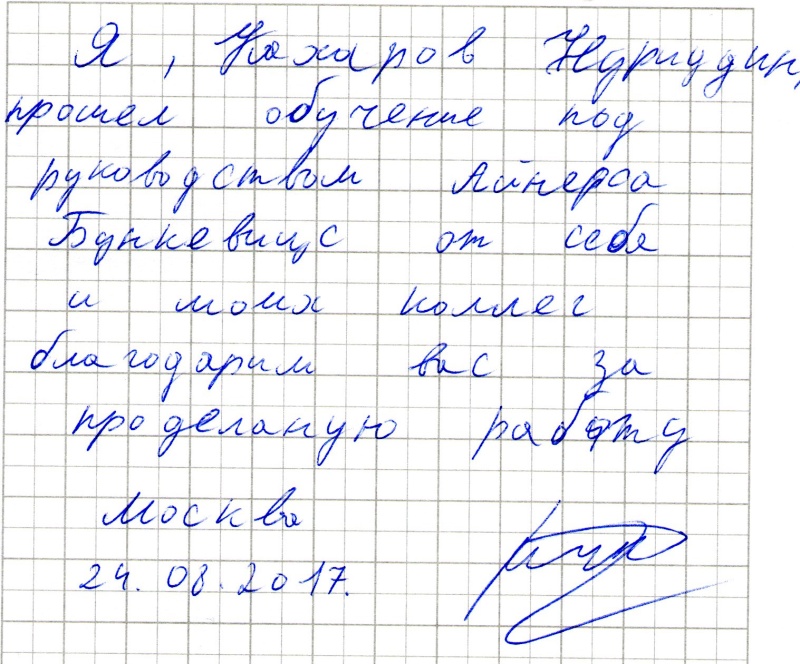 Я, Кахаров Нуриддин,
прошел обучение под
руководством Айнерса
Бункевицс от себя
и моих коллег
благодарим вас за
проделаную работу
Москва
24.08.2017.